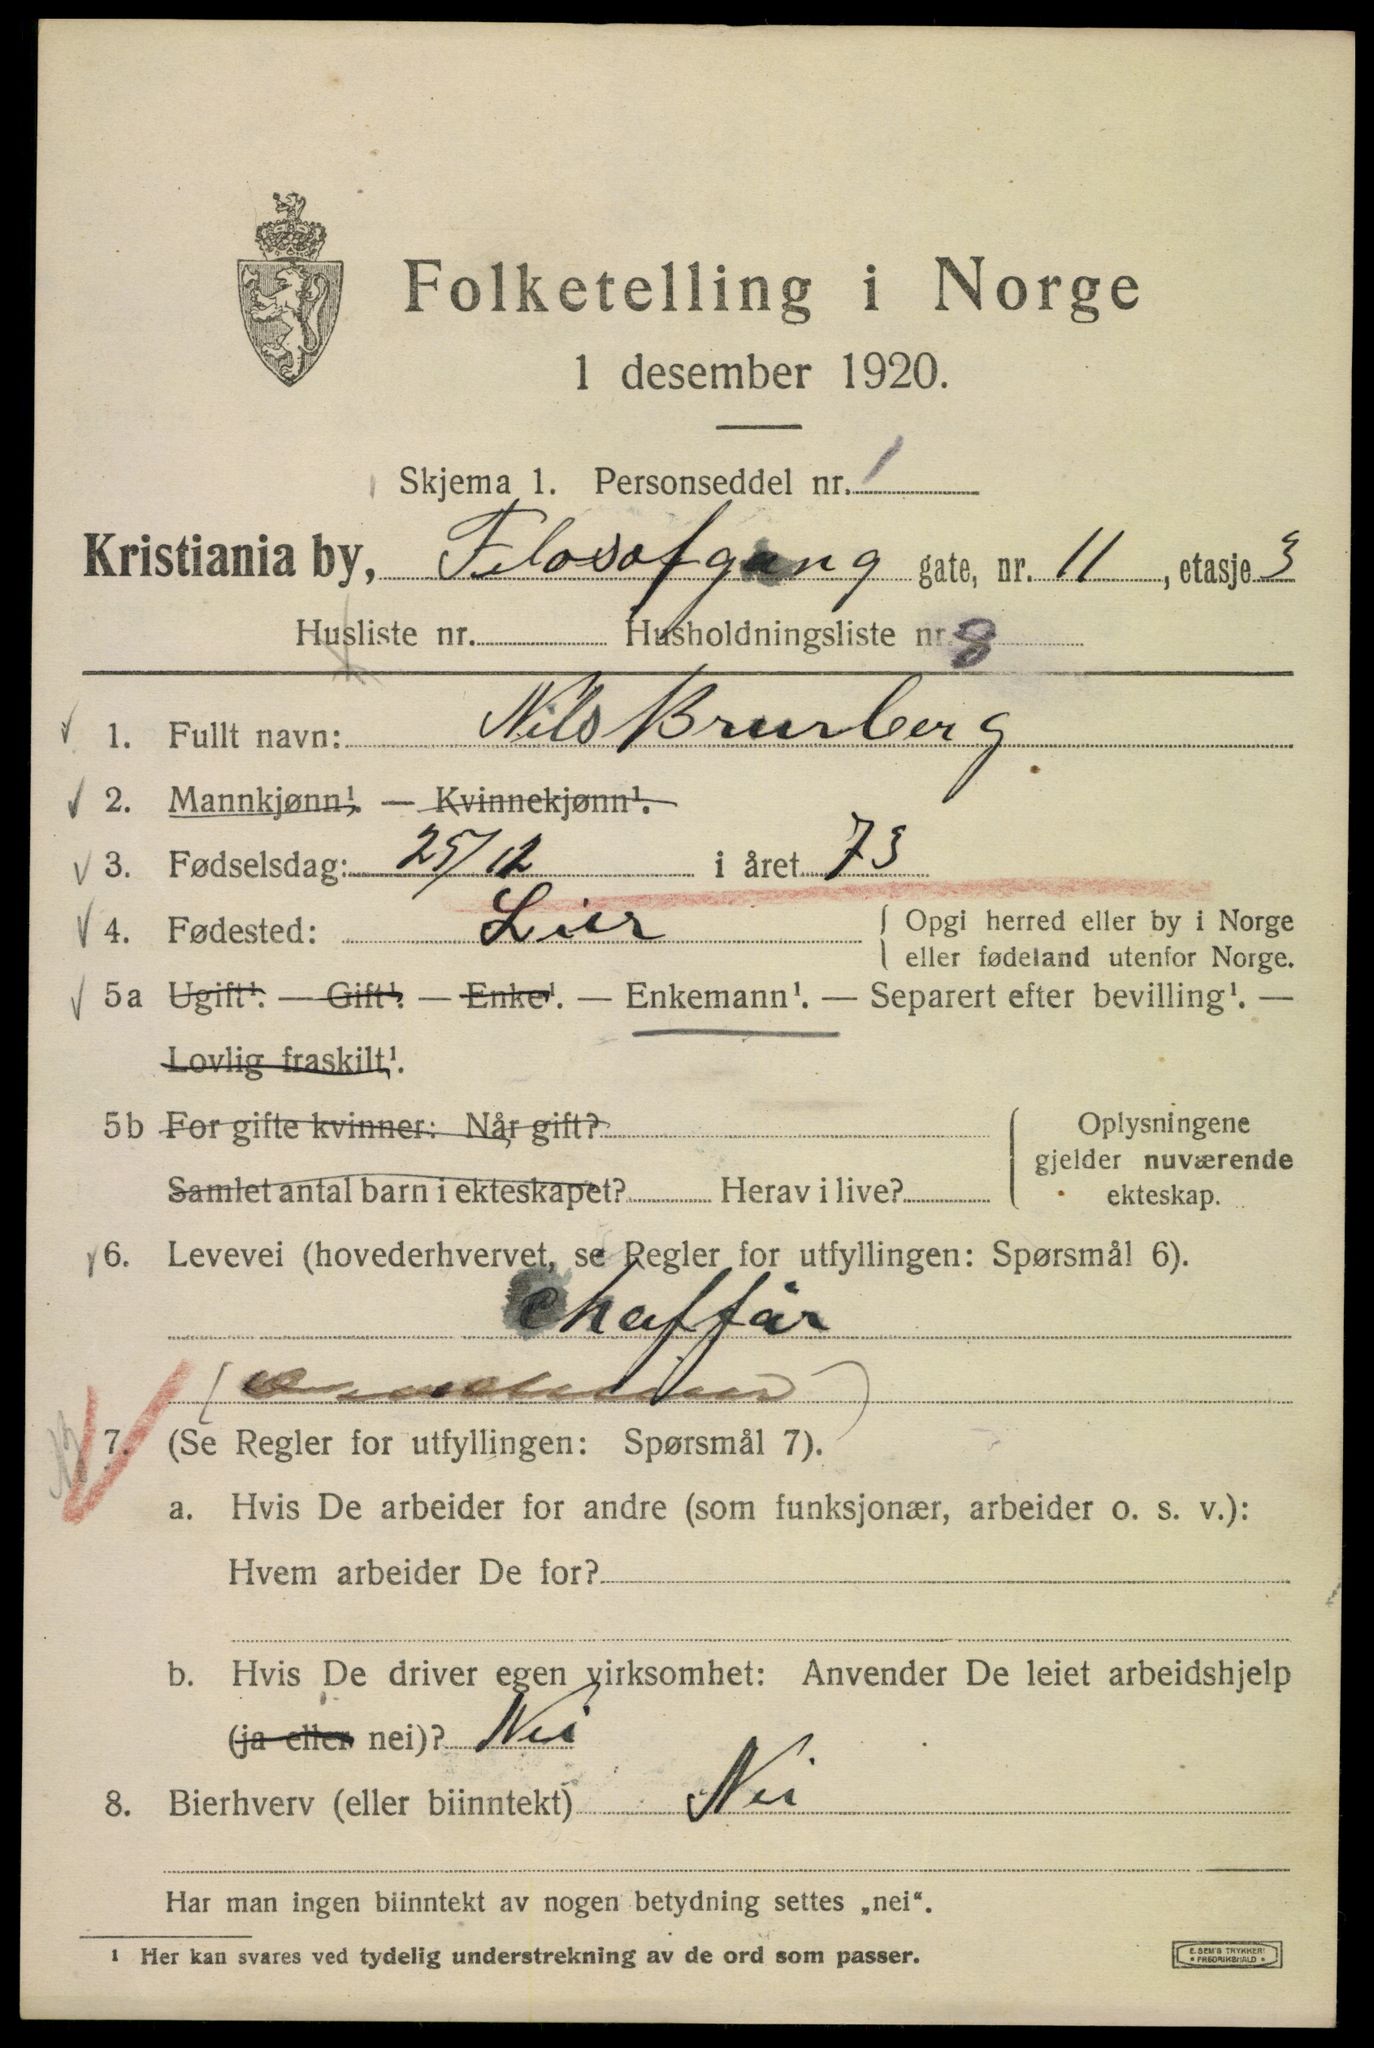 Folketelling i Norge
1 desember 1920.
Skjema 1. Personseddel nr. 1
Kristiania by, Filosofgang gate, nr. 11, etasje 3
Husliste nr. Husholdningsliste nr. 8
1. Fullt navn: Nils Brurberg
2. Mannkjønn¹. — Kvinnekjønn¹.
3. Fødselsdag: 25/12 i året 73
4. Fødested: Lier { Opgi herred eller by i Norge
eller fødeland utenfor Norge.
5a Ugift¹. — Gift¹. — Enke¹. — Enkemann¹. — Separert efter bevilling¹. —
Lovlig fraskilt¹.
5b For gifte kvinner: Når gift? { Oplysningene
gjelder nuværende
Samlet antal barn i ekteskapet? Herav i live?
ekteskap.
6. Levevei (hovederhvervet, se Regler for utfyllingen: Spørsmål 6).
Chaffør
7. (Se Regler for utfyllingen: Spørsmål 7).
a. Hvis De arbeider for andre (som funksjonær, arbeider o. s. v.):
Hvem arbeider De for?
b. Hvis De driver egen virksomhet: Anvender De leiet arbeidshjelp
(ja eller nei)? Nei
8. Bierhverv (eller biinntekt) Nei
Har man ingen biinntekt av nogen betydning settes „nei“.
¹ Her kan svares ved tydelig understrekning av de ord som passer.
E. SEM'S TRYKKERI
• FREDRIKSHALD •